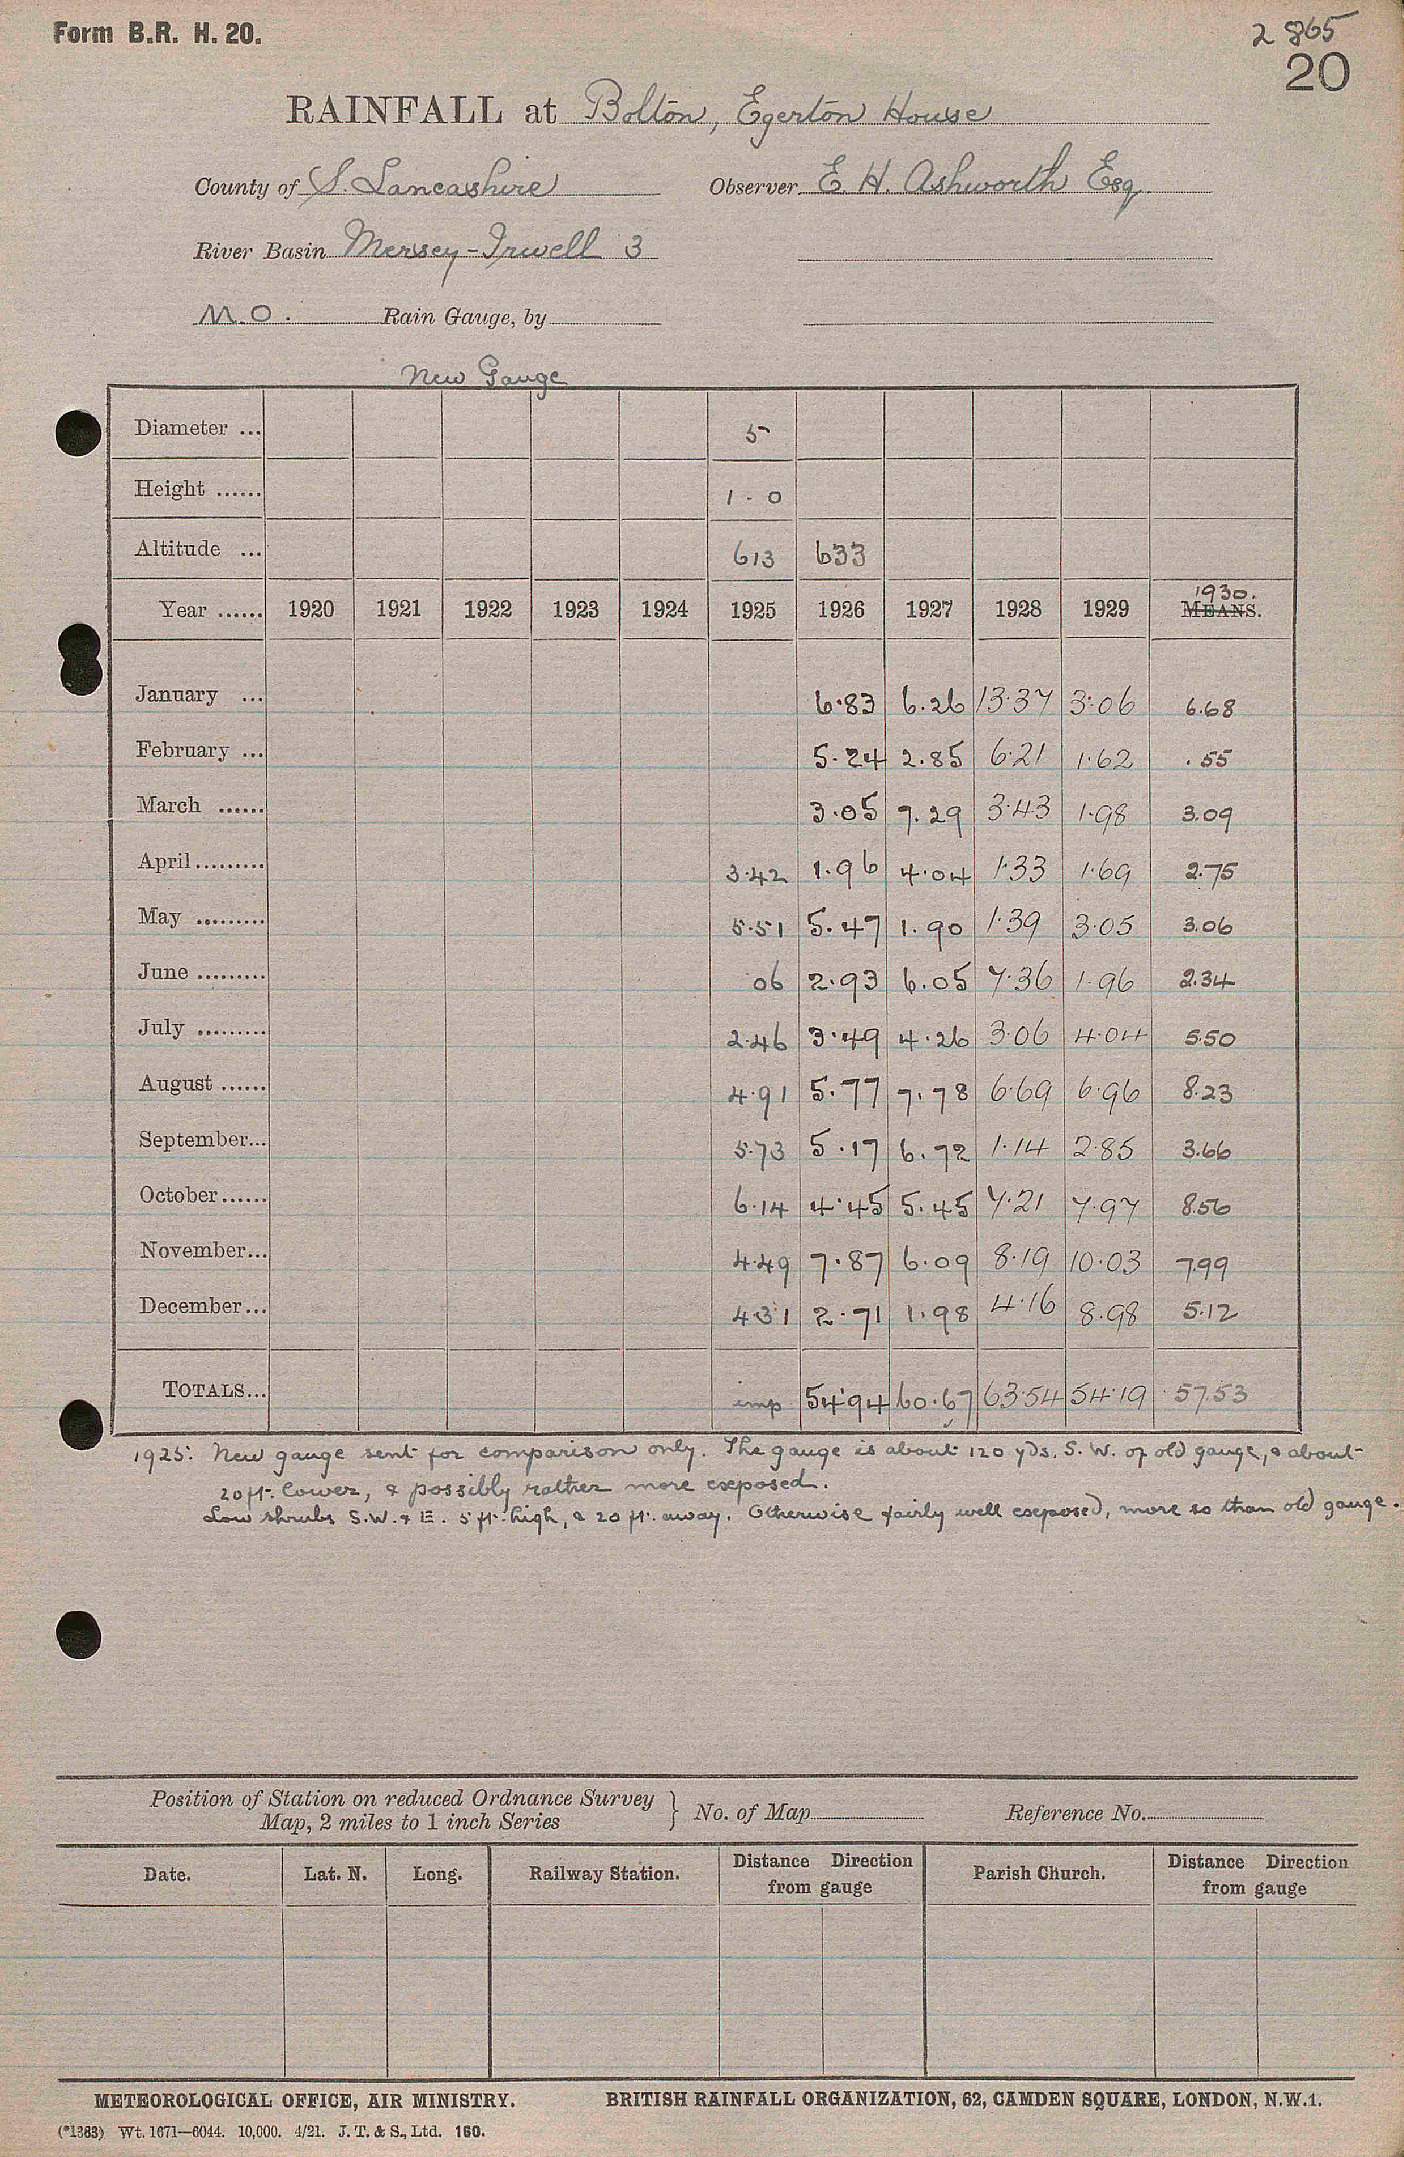 Form B.R. H. 20.
2865
20
RAINFALL at Bolton, Egerton House
County of S. Lancashire Observer E. H. Ashworth Esq
River Basin Mersey-Irwell 3
M.O. Rain Gauge, by
New Gauge
Diameter ... 5
Height ...... 1 - 0
Altitude ... 613 633
1930.
Year ...... 1920 1921 1922 1923 1924 1925 1926 1927 1928 1929 MEANS.
January ... 6.83 6.26 13.37 3.06 6.68
February ... 5.24 2.85 6.21 1.62 .55
March ...... 3.05 7.29 3.43 1.98 3.09
April......... 3.42 1.96 4.04 1.33 1.69 2.75
May ......... 5.51 5.47 1.90 1.39 3.05 3.06
June ......... 06 2.93 6.05 7.36 1.96 2.34
July ......... 2.46 3.49 4.26 3.06 4.04 5.50
August ...... 4.91 5.77 7.78 6.69 6.96 8.23
September... 5.73 5.17 6.72 1.14 2.85 3.66
October...... 6.14 4.45 5.45 7.21 7.97 8.56
November... 4.49 7.87 6.09 8.19 10.03 7.99
December... 4.31 2.71 1.98 4.16 8.98 5.12
TOTALS... imp 54.94 60.67 63.54 54.19 57.53
1925: New gauge sent for comparison only. The gauge is about 120 yds. S.W. of old gauge, & about
20 ft. lower, & possibly rather more exposed.
Low shrubs S.W. & E. 5 ft. high, & 20 ft. away. Otherwise fairly well exposed, more so than old gauge.
Position of Station on reduced Ordnance Survey
Map, 2 miles to 1 inch Series } No. of Map Reference No.
Date. Lat. N. Long. Railway Station. Distance Direction from gauge Parish Church. Distance Direction from gauge
METEOROLOGICAL OFFICE, AIR MINISTRY. BRITISH RAINFALL ORGANIZATION, 62, CAMDEN SQUARE, LONDON, N.W.1.
(*1383) Wt. 1671—6044. 10,000. 4/21. J. T. & S., Ltd. 160.